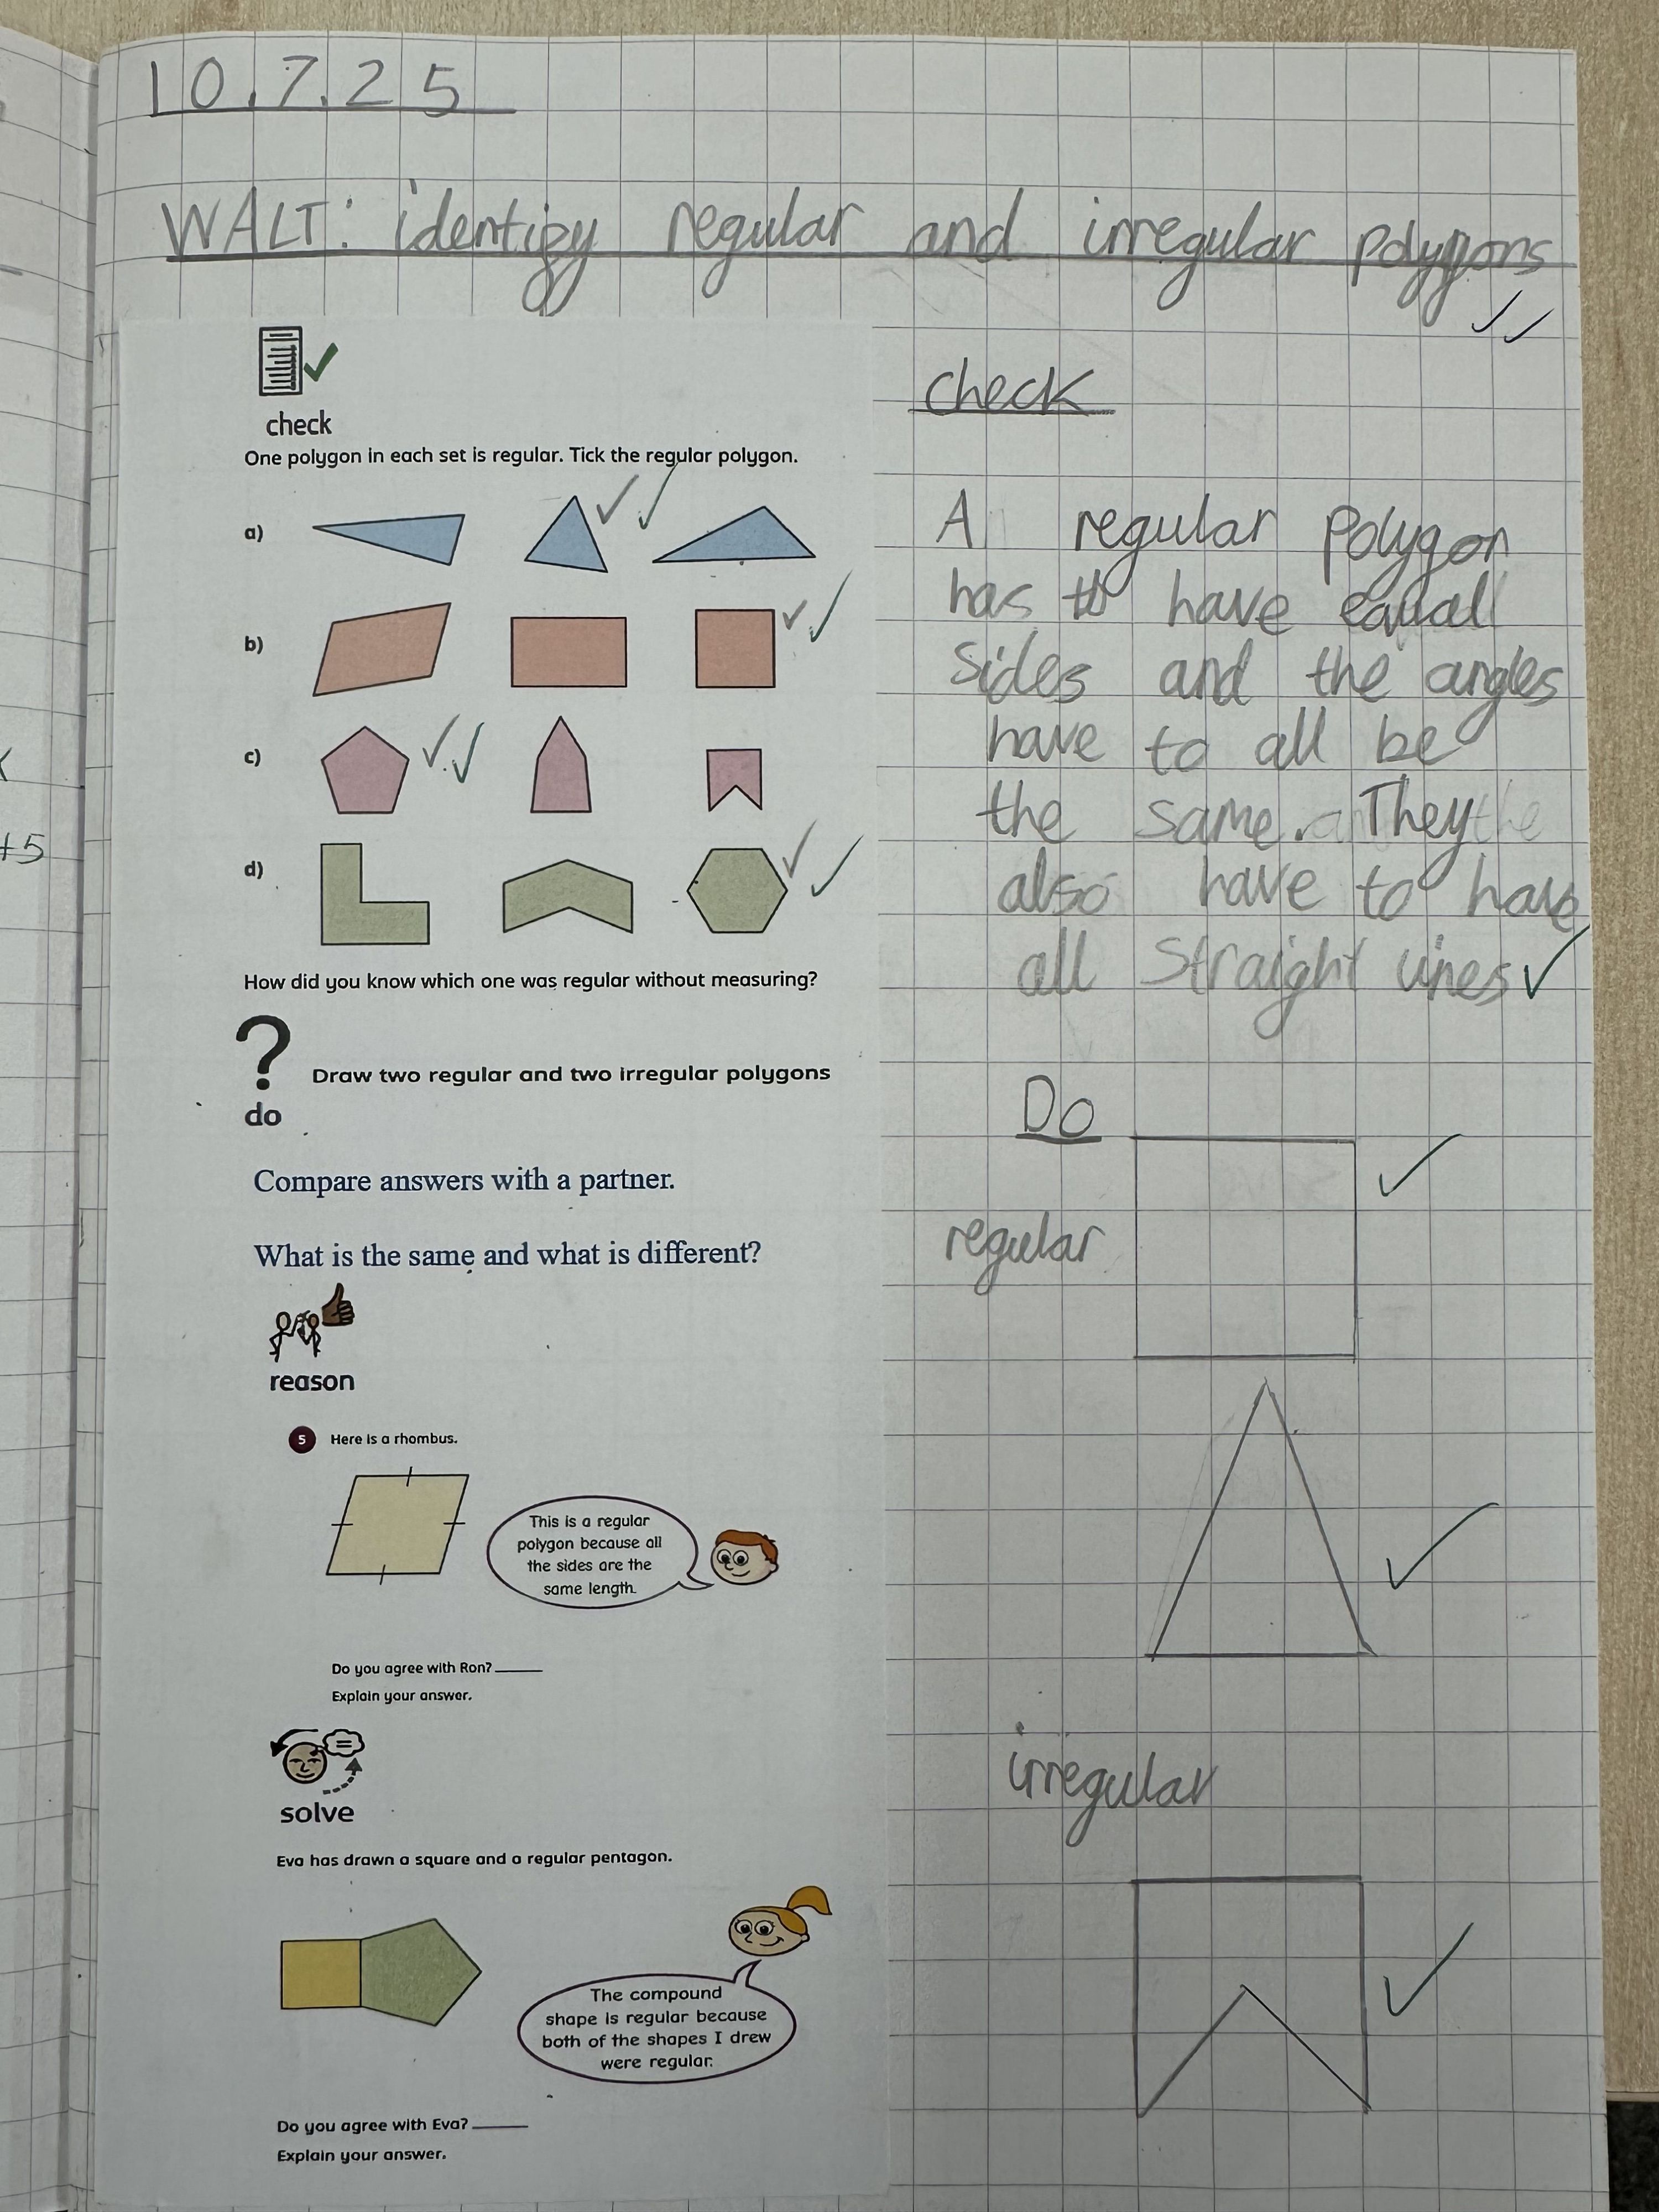 10.7.25
WALT: identify regular and irregular polygons
check
One polygon in each set is regular. Tick the regular polygon.
a)
b)
c)
d)
How did you know which one was regular without measuring?
?
do
Draw two regular and two irregular polygons
Compare answers with a partner.
What is the same and what is different?
reason
5 Here is a rhombus.
This is a regular
polygon because all
the sides are the
same length.
Do you agree with Ron?
Explain your answer.
=
solve
Eva has drawn a square and a regular pentagon.
The compound
shape is regular because
both of the shapes I drew
were regular.
Do you agree with Eva?
Explain your answer.
check
A regular polygon
has to have equal
sides and the angles
have to all be
the same. They
also have to have
all straight lines
Do
regular
irregular
+5